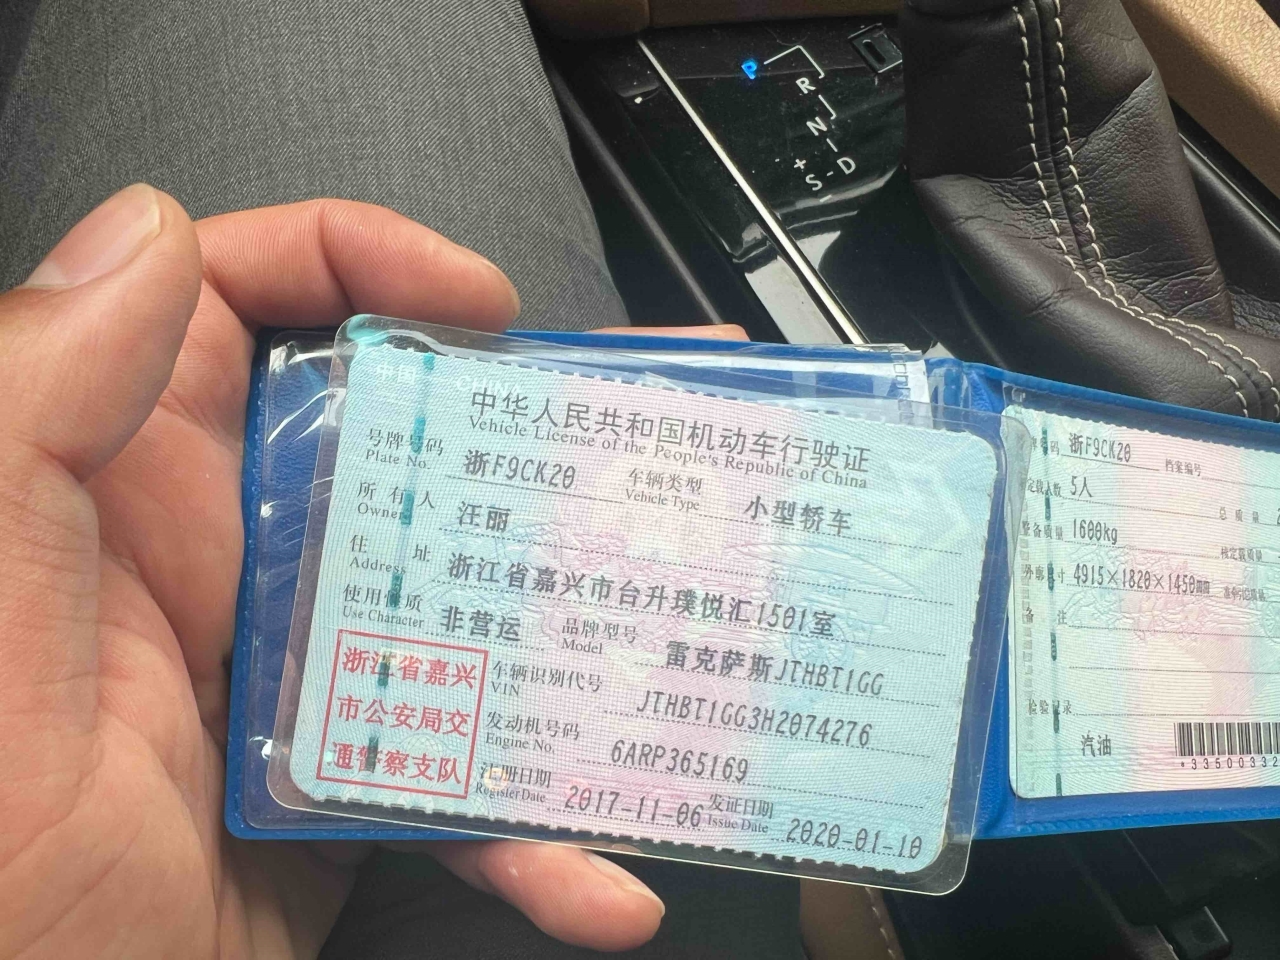 P
R
N
+
S-D
-
中国 CHINA
中华人民共和国机动车行驶证
Vehicle License of the People's Republic of China
号牌号码 浙F9CK20 车辆类型 小型轿车
Plate No. Vehicle Type
所有人 汪丽
Owner
住址 浙江省嘉兴市台升璞悦汇1501室
Address
使用性质 非营运 品牌型号 雷克萨斯JTHBT1GG
Use Character Model
浙江省嘉兴
市公安局交
通警察支队
车辆识别代号 JTHBT1GG3H2074276
VIN
发动机号码 6ARP365169
Engine No.
注册日期 2017-11-06 发证日期 2020-01-10
Register Date Issue Date
号码 浙F9CK20 档案编号
定载人数 5人 总质量
整备质量 1600kg 核定载质量
外廓尺寸 4915×1820×1450mm
备注
检验记录
汽油
*33500332